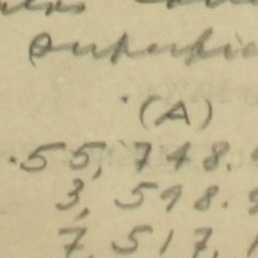 superfic
(A)
55,748.
3,598.
7,517,